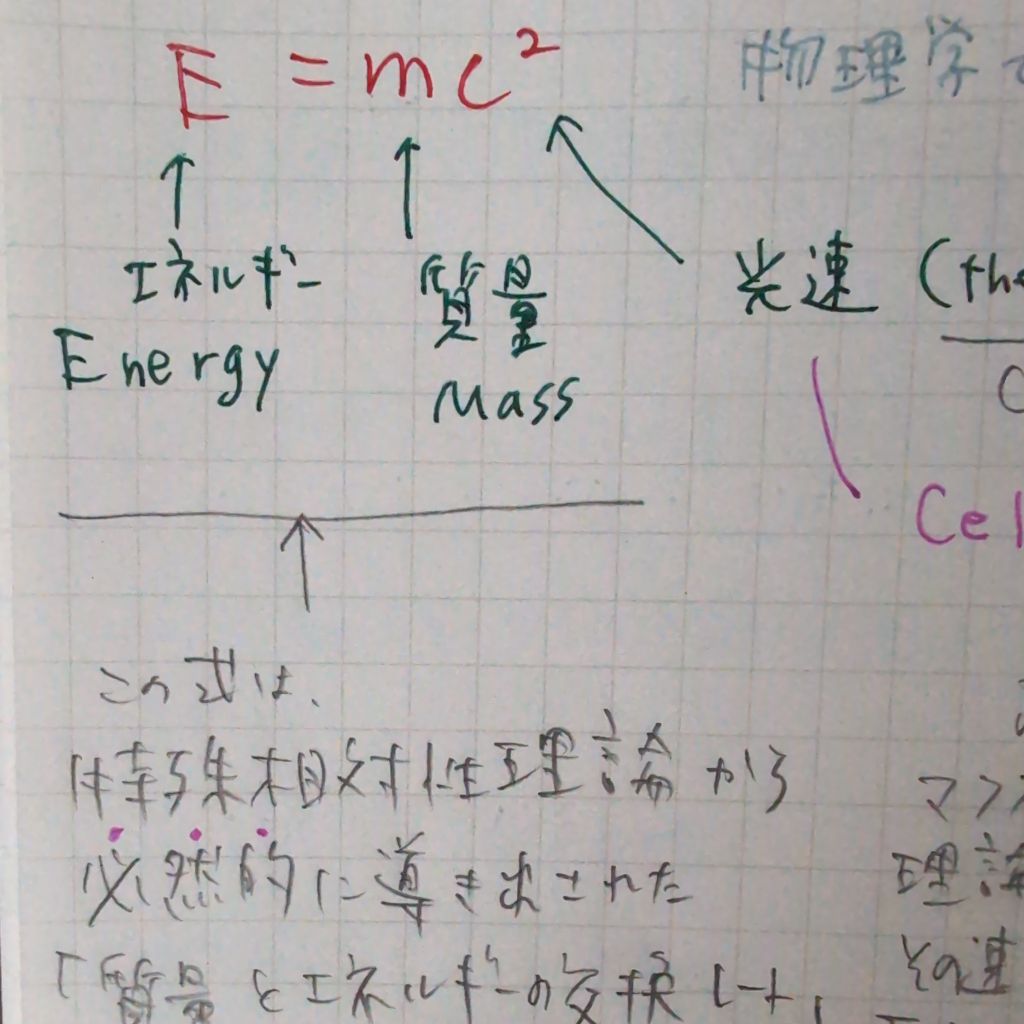 E = mc²
物理学
エネルギー
Energy
質量
Mass
光速 (the
Cel
この式は、
特殊相対性理論から
必然的に導き出された
「質量とエネルギーの交換レート」
マクス
理論
その速